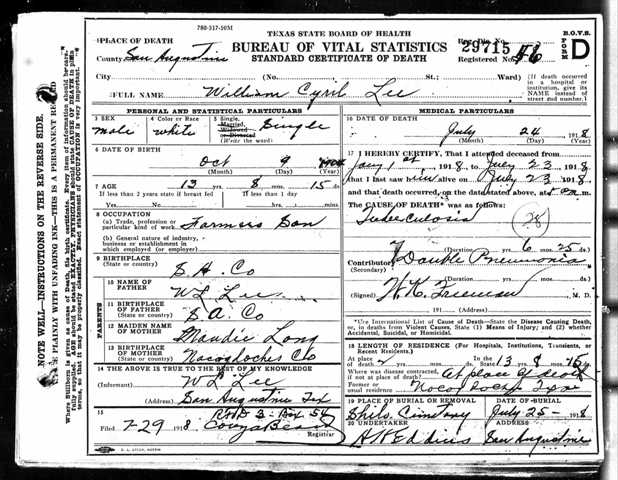 780-317-50M
TEXAS STATE BOARD OF HEALTH
BUREAU OF VITAL STATISTICS
STANDARD CERTIFICATE OF DEATH
B.O.V.S.
FORM D
Reg. Dis. No. 29715
Registered No. 46
PLACE OF DEATH
County San Augustine
City (No. St.; Ward)
(If death occurred in a hospital or institution, give its NAME instead of street and number.)
FULL NAME William Cyril Lee
PERSONAL AND STATISTICAL PARTICULARS
3 SEX male
4 Color or Race white
5 Single, Married, Widowed or Divorced (Write the word) Single
6 DATE OF BIRTH
Oct 9
(Month) (Day) (Year)
7 AGE 13 yrs. 8 mo. 15 ds.
If less than 2 years state if breast fed If less than 1 day
8 OCCUPATION
(a) Trade, profession or particular kind of work Farmers Son
(b) General nature of industry, business or establishment in which employed (or employer)
9 BIRTHPLACE
(State or country) S. A. Co
PARENTS
10 NAME OF FATHER W L Lee
11 BIRTHPLACE OF FATHER
(State or country) S A. Co
12 MAIDEN NAME OF MOTHER Maudie Long
13 BIRTHPLACE OF MOTHER
(State or country) Nacogdoches Co
14 THE ABOVE IS TRUE TO THE BEST OF MY KNOWLEDGE
(Informant) W L Lee
(Address) San Augustine Tex
R#D 3- Box 54
15
Filed 7-29 1918
Registrar
MEDICAL PARTICULARS
16 DATE OF DEATH
July 24 1918
(Month) (Day) (Year)
17 I HEREBY CERTIFY, That I attended deceased from
Jany 1st, 1918, to July 23 1918
that I last saw him alive on July 23 1918
and that death occurred, on the date stated above, at 5 a m.
The CAUSE OF DEATH* was as follows:
Tuberculosis
28
(Duration) yrs. 6 mos. 25 ds.
Contributory (Secondary) Double Pneumonia
(Duration) yrs. mos. ds.
(Signed) W. K. Freeman M. D.
191 (Address)
*Use International List of Cause of Death—State the Disease Causing Death, or, in deaths from Violent Causes, State (1) Means of Injury; and (2) whether Accidental, Suicidal, or Homicidal.
18 LENGTH OF RESIDENCE (For Hospitals, Institutions, Transients, or Recent Residents.)
At place of death yrs. mos. ds. In the State 13 yrs. 8 mos. 15 ds.
Where was disease contracted, if not at place of death? at place of death
Former or usual residence Nacogdoches Texas
19 PLACE OF BURIAL OR REMOVAL Shilo Cemetery
DATE OF BURIAL July 25- 1918
20 UNDERTAKER A H Eddins
ADDRESS San Augustine
NOTE WELL—INSTRUCTIONS ON THE REVERSE SIDE.
PLAINLY WITH UNFADING INK—THIS IS A PERMANENT RECORD